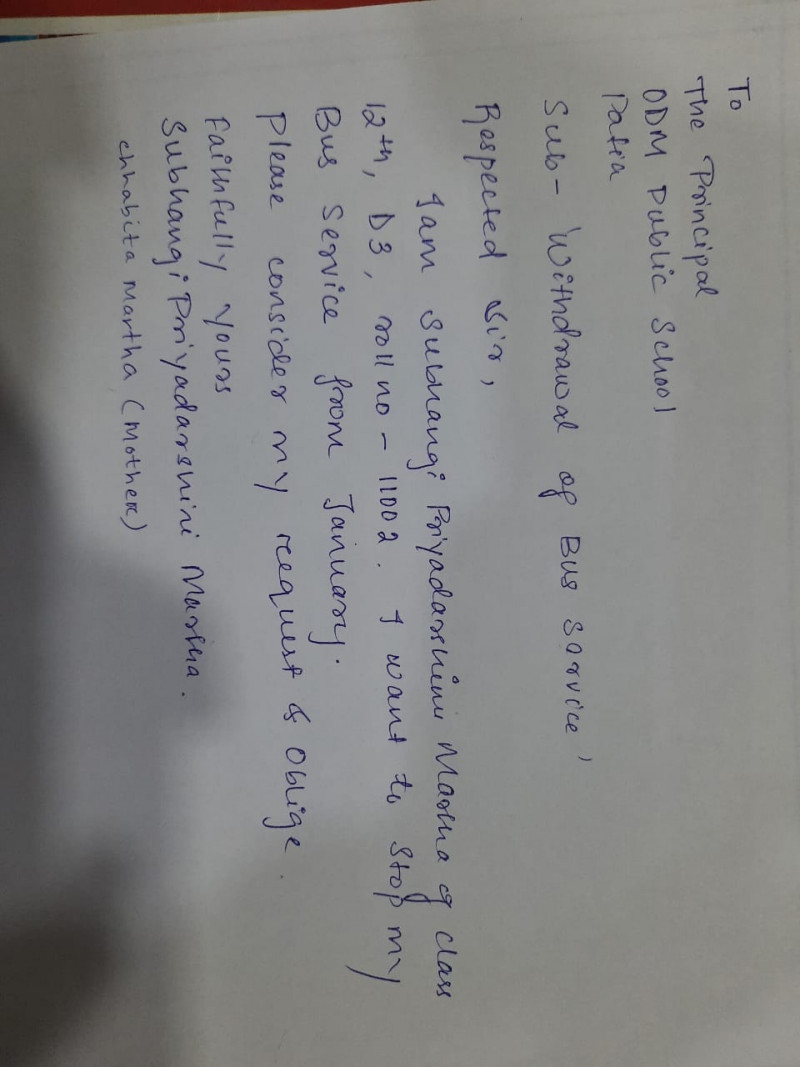 To
The Principal
ODM Public School
Patia
Sub- 'Withdrawal of Bus Service'
Respected Sir,
I am Subhangi Priyadarshini Martha of class
12th, D3, roll no - 11002. I want to stop my
Bus Service from January.
Please consider my request & Oblige.
Faithfully Yours
Subhangi Priyadarshini Martha.
Chhabita Martha (Mother)